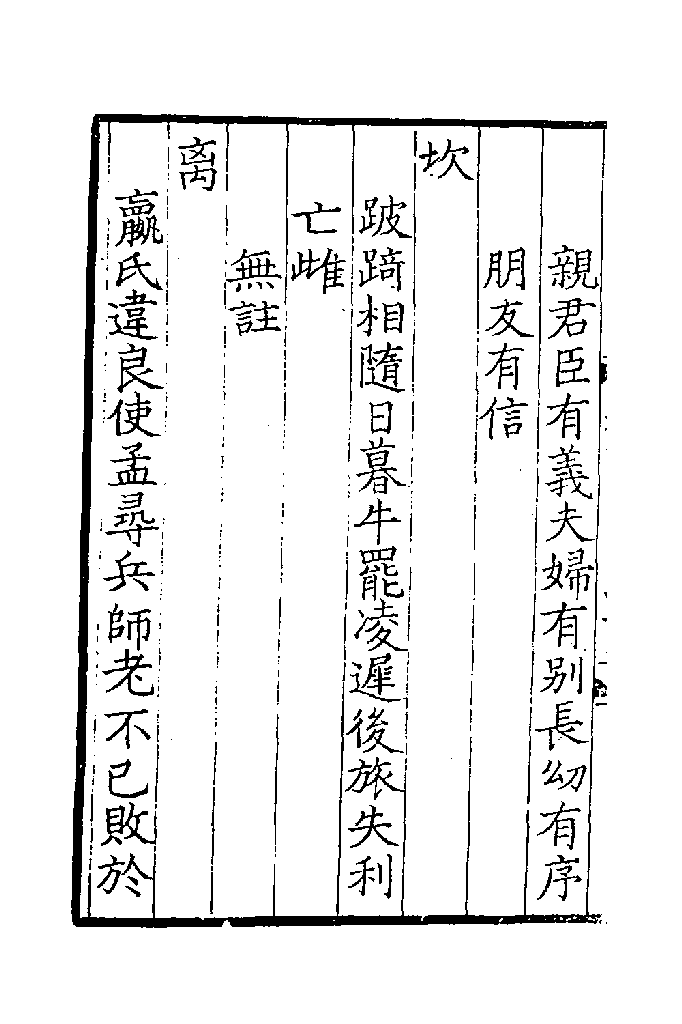 親君臣有義夫婦有别長㓜有序
朋友有信
坎
跛踦相隨日暮牛罷凌遲後旅失利
亡雌
無註
离
嬴氏違良使孟尋兵師老不已敗於